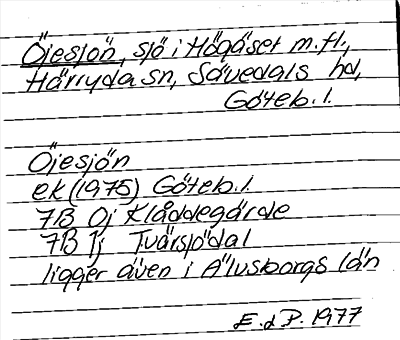 Öjesjön, sjö i Högåset m.fl.,
Härryda sn, Sävedals hd,
Göteb. l.
Öjesjön
ek (1975) Göteb. l.
7B 0j Kläddegärde
7B 1j Tvärsjödal
ligger även i Älvsborgs län
E.d P. 1977